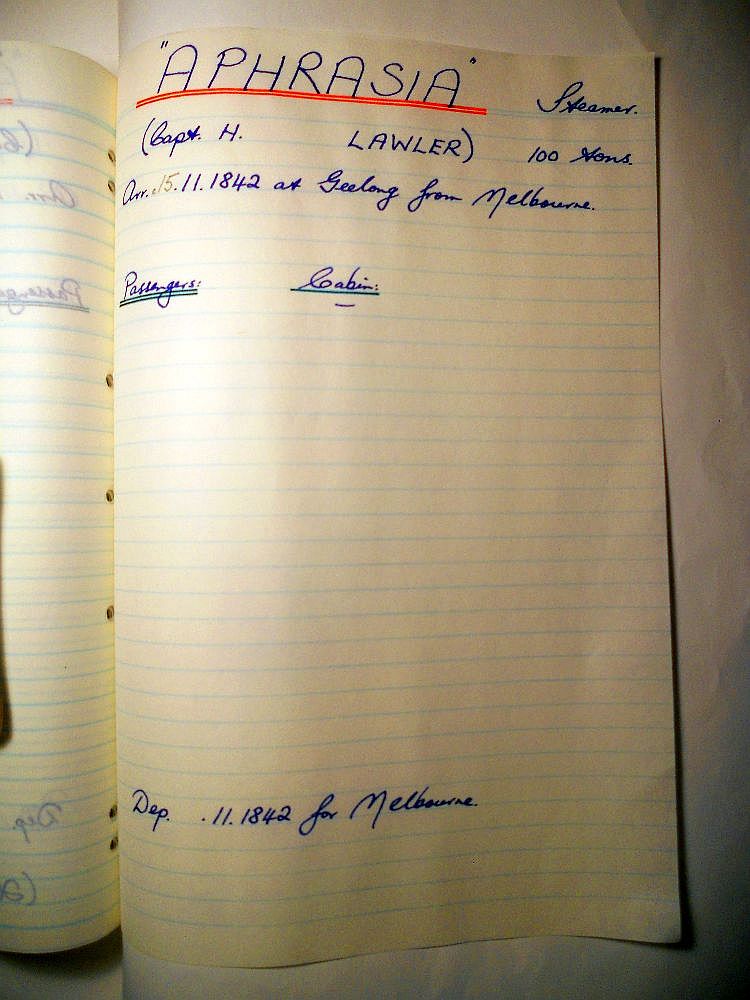 "APHRASIA" Steamer.
(Capt. H. LAWLER) 100 tons.
Arr. 15.11.1842 at Geelong from Melbourne.
Passengers: Cabin:
—
Dep. .11.1842 for Melbourne.